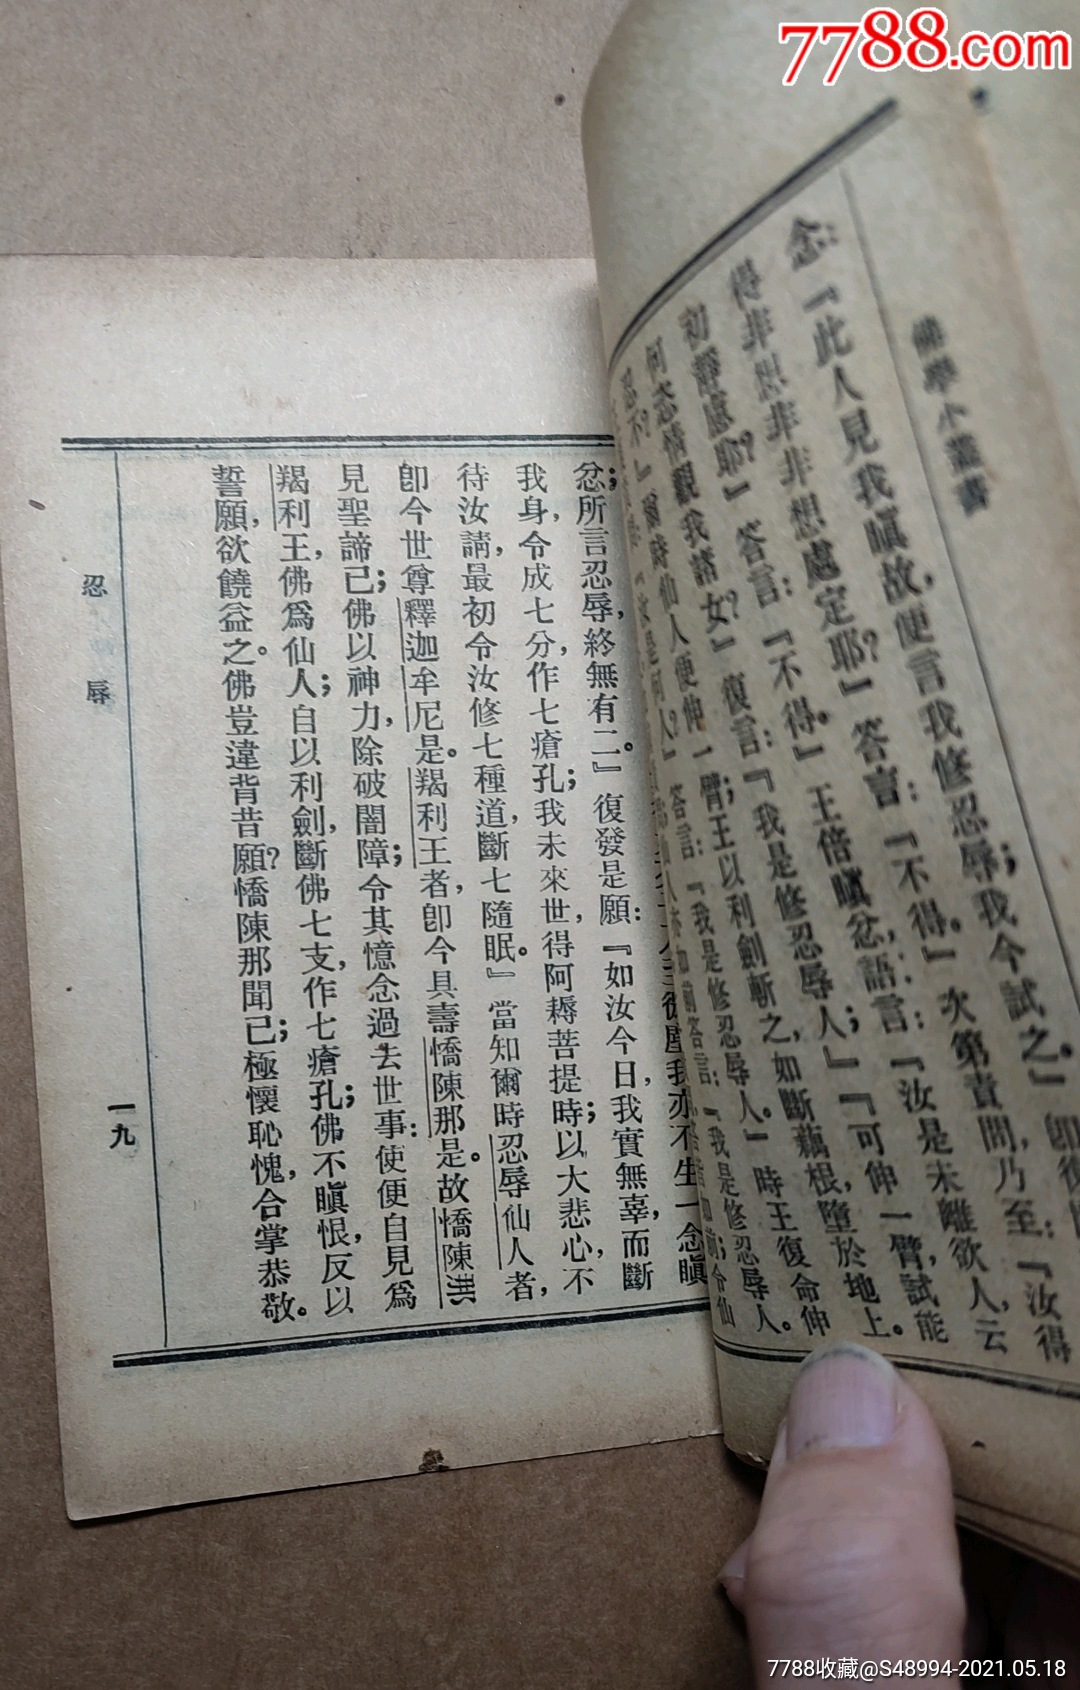 7788.com
佛學小叢書
念：『此人見我瞋故，便言我修忍辱；我今試之。』卽復
得非想非非想處定耶？』答言：『不得。』次第責問，乃至：『汝得
初靜慮耶？』答言：『不得。』王倍瞋忿，語言：『汝是未離欲人，云
何恣情觀我諸女？』復言：『我是修忍辱人；』『可伸一臂，試能
忍不？』爾時仙人便伸一臂；王以利劍斬之，如斷藕根，墮於地上。
答言：『我是修忍辱人。』時王復命伸
答言：『我是修忍辱人。
我亦不生一念瞋
忿；所言忍辱，終無有二。』復發是願：『如汝今日，我實無辜，而斷
我身，令成七分，作七瘡孔；我未來世，得阿耨菩提時；以大悲心，不
待汝請，最初令汝修七種道，斷七隨眠。』當知爾時忍辱仙人者，
卽今世尊釋迦牟尼是。羯利王者，卽今具壽憍陳那是。故憍陳那
見聖諦已；佛以神力，除破闇障；令其憶念過去世事：使便自見爲
羯利王，佛爲仙人；自以利劍，斷佛七支，作七瘡孔；佛不瞋恨，反以
誓願，欲饒益之。佛豈違背昔願？憍陳那聞已；極懷恥愧，合掌恭敬。
忍辱
一九
7788收藏@S48994-2021.05.18